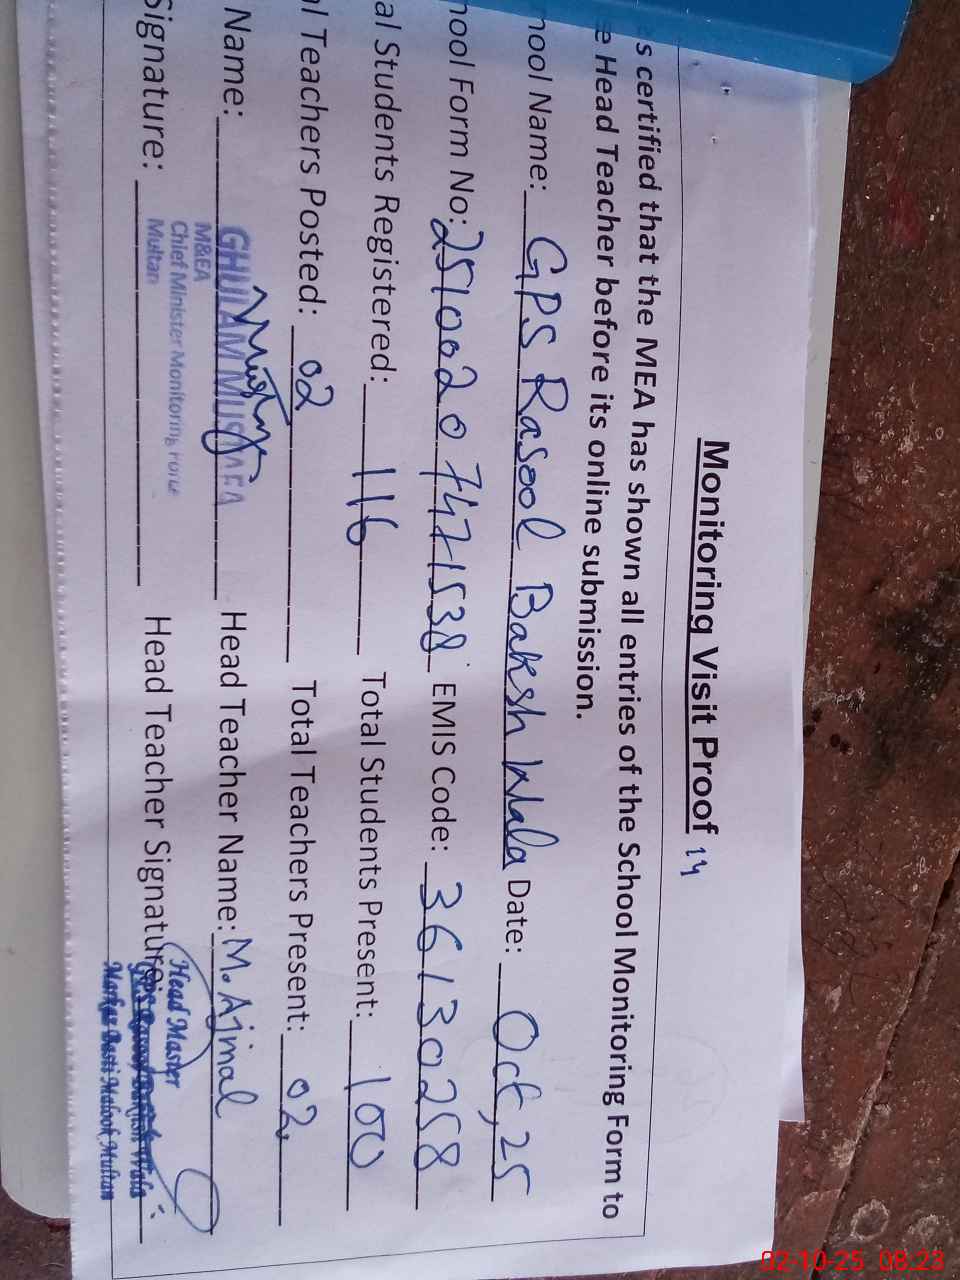 Monitoring Visit Proof 14
s certified that the MEA has shown all entries of the School Monitoring Form to
e Head Teacher before its online submission.
hool Name: GPS Rasool Baksh Wala Date: Oct, 25
hool Form No: 25100207471538 EMIS Code: 36130258
al Students Registered: 116 Total Students Present: 100
al Teachers Posted: 02 Total Teachers Present: 02
Name: GHULAM MUSTAFA Head Teacher Name: M. Ajmal
M&EA
Chief Minister Monitoring Force
Multan
Signature: Head Teacher Signature:
Head Master
Markaz Basti Malook Multan
02-10-25 08:23